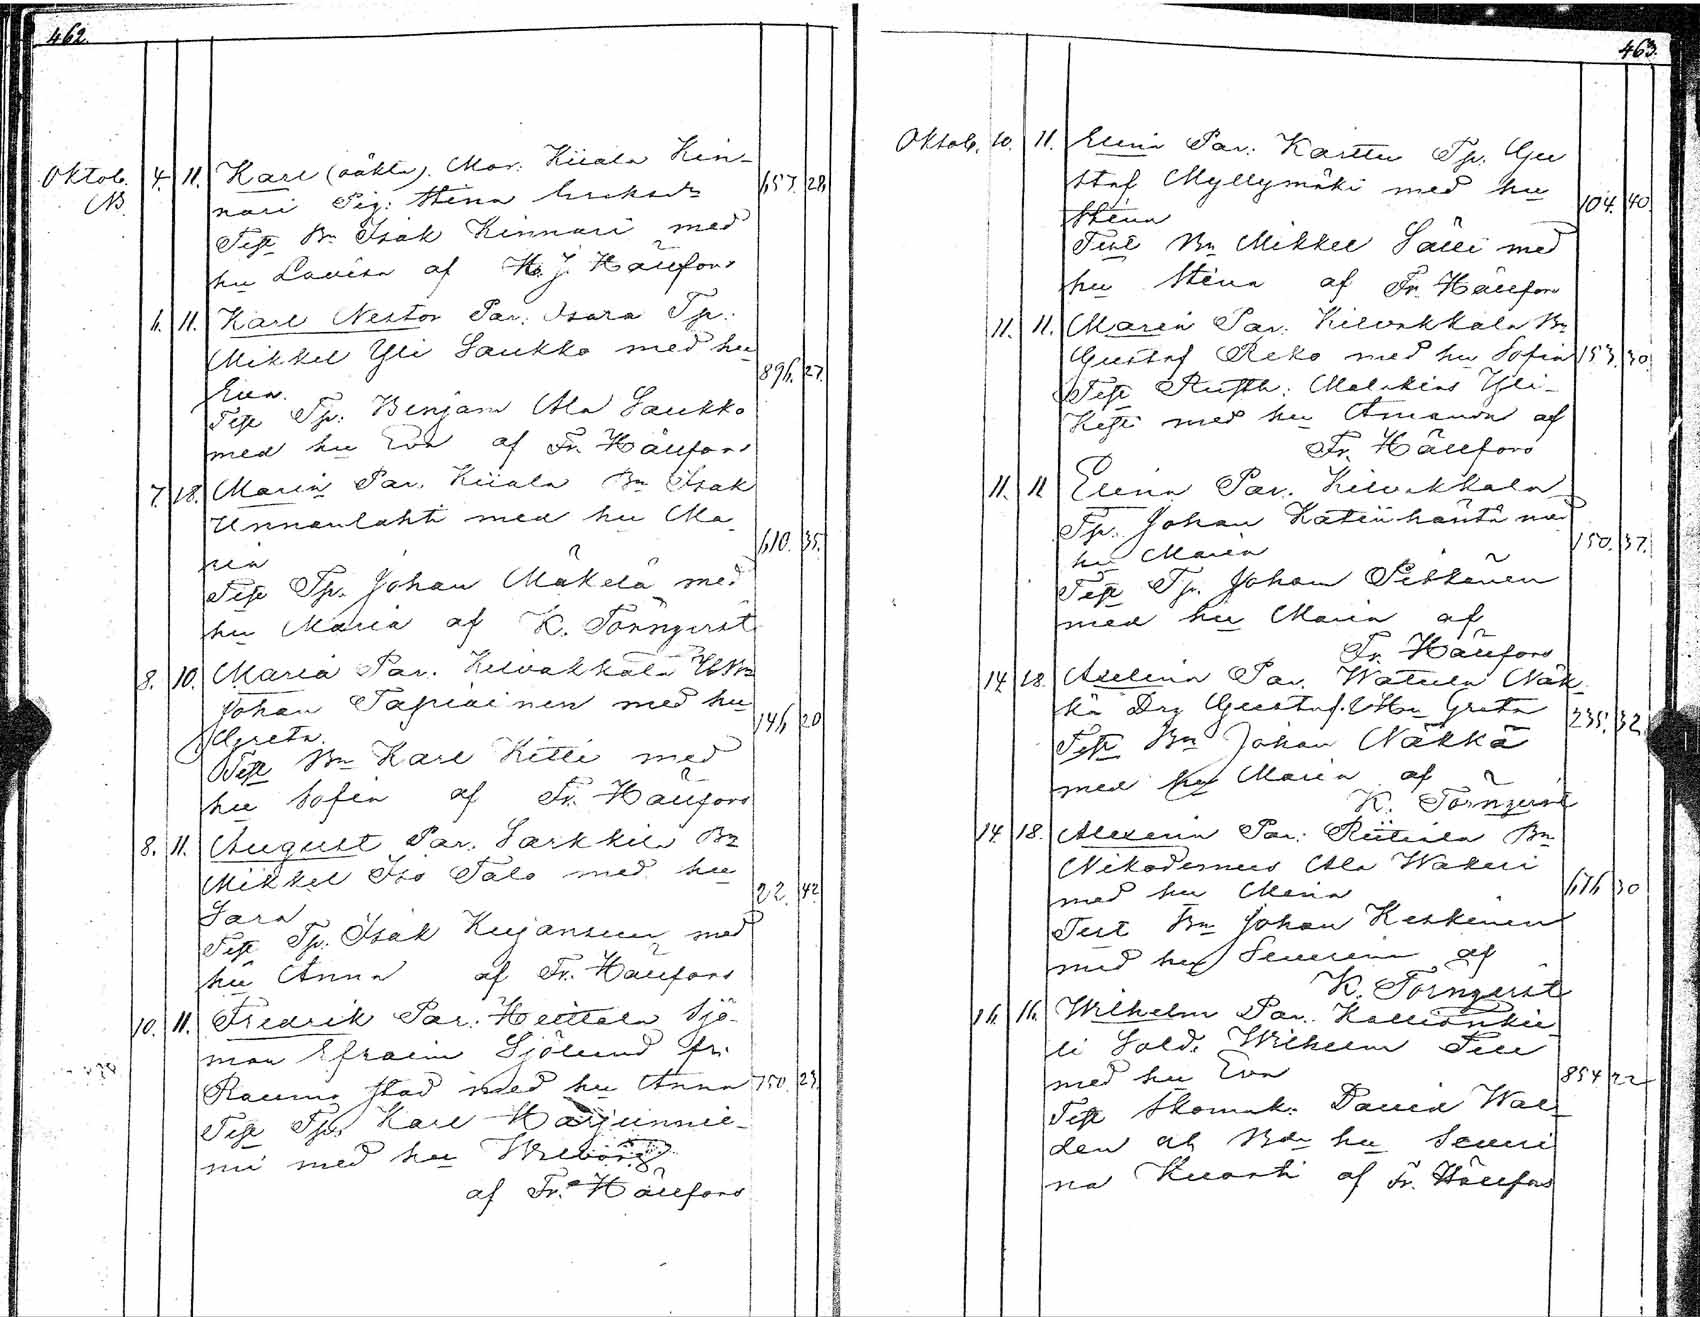 462.
Oktob. 4. 11. Karl (oäkta). Mor: Kiiala Kin-
NB. nari Pig: Stina Eriksdr 657. 28.
Test Bn Isak Kinnari med
hu Lovisa af K. J. Hällfors
6. 11. Karl Nestor Par: Isara Tp.
Mikkel Yli Saukko med hu 896. 27.
Eva.
Test Tp. Benjam Ala Saukko
med hu Eva af Fr. Hällfors
7. 18. Maria Par. Kiiala Bn Isak
Unnanlahti med hu Ma- 610. 35.
ria
Test Tp. Johan Mäkelä med
hu Maria af K. Törnqvist
8. 10. Maria Par. Kilvakkala
Johan Tapiainen med hu 146 20
Greta.
Test Bn Karl Kitti med
hu Sofia af Fr. Hällfors
8. 11. August Par. Sarkkila Bn
Mikkel Iso Talo med hu 22. 42
Sara
Test Tp. Isak Kujansuu med
hu Anna af Fr. Hällfors
10. 11. Fredrik Par. Heittola Sjö-
man Efraim Sjölund fr.
Raumo stad med hu Anna 750. 29.
Test Tp. Karl Harjunnie-
mi med hu Wilborg
af Fr. Hällfors
463.
Oktob. 10. 11. Elina Par: Karttu Tp. Gu
staf Myllymäki med hu 104. 40.
Stina
Test Bn Mikkel Sälli med
hu Stina af Fr. Hällfors
11. 11. Maria Par. Kilvakkala Bn
Gustaf Reko med hu Sofia 153. 30.
Test Rusth: Malakias Yli-
Kesti med hu Amanda af
Fr. Hällfors
11. 11 Elina Par. Kilvakkala
Tp. Johan Katiinhäntä med 150. 37.
hu Maria
Test Tp. Johan Pitkänen
med hu Maria af
Fr. Hällfors
14. 18. Axelina Par. Watula Näk-
kä Drg Gustaf. & Hu Greta 235. 32.
Test Bn Johan Näkkä
med hu Maria af
K. Törnqvist
14. 18. Alexina Par: Riitiala Bn
Nikodemus Ala Wakeri 676 30
med hu Maria
Test Bn Johan Keskinen
med hu Severina af
K. Törnqvist
16. 16. Wilhelm Par. Kallionkie-
li Sold. Wilhelm
med hu Eva 854 22
Test Skomak: David Wal-
den och Bds hu Severi
na Knorti af Fr. Hällfors